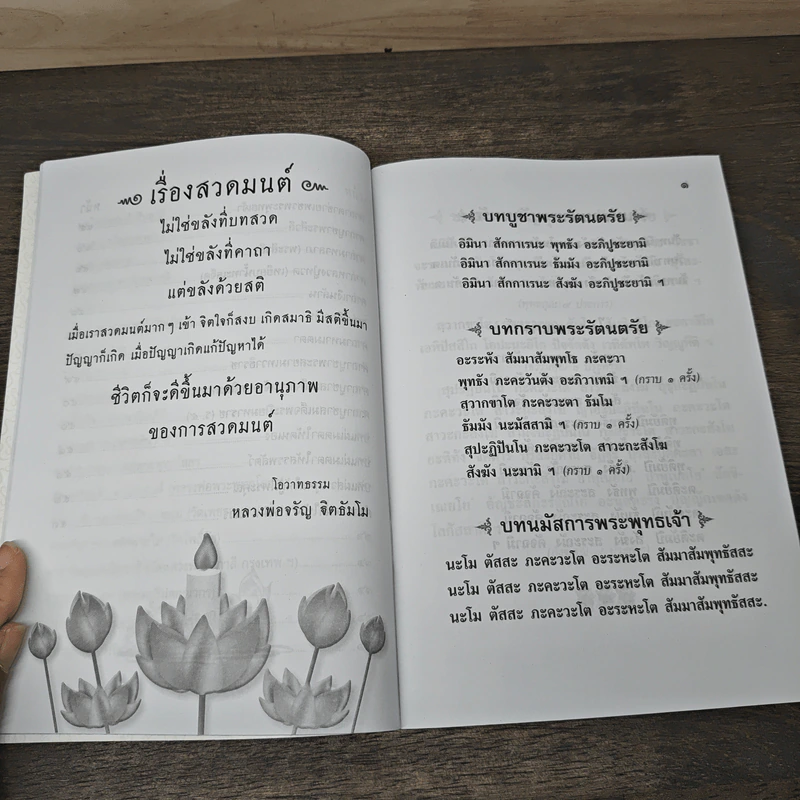 เรื่องสวดมนต์
ไม่ใช่ขลังที่บทสวด
ไม่ใช่ขลังที่คาถา
แต่ขลังด้วยสติ
เมื่อเราสวดมนต์มากๆ เข้า จิตใจก็สงบ เกิดสมาธิ มีสติขึ้นมา
ปัญญาก็เกิด เมื่อปัญญาเกิดแก้ปัญหาได้
ชีวิตก็จะดีขึ้นมาด้วยอานุภาพ
ของการสวดมนต์
โอวาทธรรม
หลวงพ่อจรัญ จิตธัมโม
๑
บทบูชาพระรัตนตรัย
อิมินา สักกาเรนะ พุทธัง อะภิปูชะยามิ
อิมินา สักกาเรนะ ธัมมัง อะภิปูชะยามิ
อิมินา สักกาเรนะ สังฆัง อะภิปูชะยามิ ฯ
บทกราบพระรัตนตรัย
อะระหัง สัมมาสัมพุทโธ ภะคะวา
พุทธัง ภะคะวันตัง อะภิวาเทมิ ฯ (กราบ ๑ ครั้ง)
สุวากขาโต ภะคะวะตา ธัมโม
ธัมมัง นะมัสสามิ ฯ (กราบ ๑ ครั้ง)
สุปะฏิปันโน ภะคะวะโต สาวะกะสังโฆ
สังฆัง นะมามิ ฯ (กราบ ๑ ครั้ง)
บทนมัสการพระพุทธเจ้า
นะโม ตัสสะ ภะคะวะโต อะระหะโต สัมมาสัมพุทธัสสะ
นะโม ตัสสะ ภะคะวะโต อะระหะโต สัมมาสัมพุทธัสสะ
นะโม ตัสสะ ภะคะวะโต อะระหะโต สัมมาสัมพุทธัสสะ.